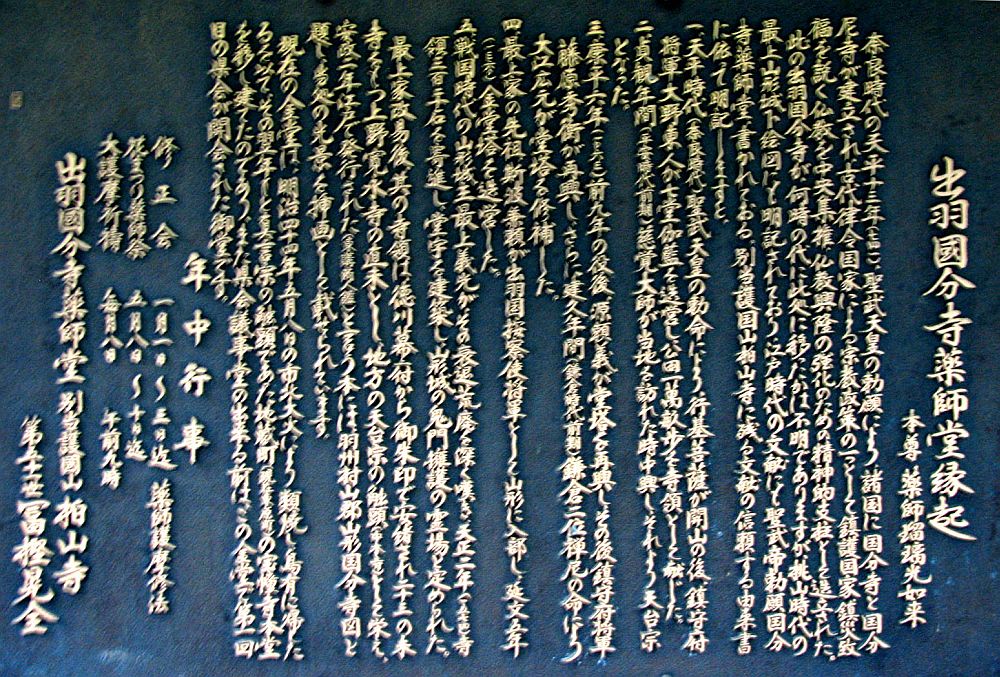 出羽國分寺薬師堂縁起
本尊 薬師瑠璃光如来
奈良時代の天平十三年(七四一)聖武天皇の勅願により諸国に国分寺と国分
尼寺が建立され古代律令国家による宗教政策の一つとして鎮護国家鎮災致
福を説く仏教を中央集権、仏教興隆の強化のための精神的支柱として造立された。
此の出羽国分寺が何時の代に此処に移ったかは不明でありますが桃山時代の
最上山形城下絵図にも明記されており江戸時代の文献にも聖武帝勅願国分
寺薬師堂と書かれてある。別当護国山柏山寺に残る文献の信頼する由来書
に依って明記しますと、
一、天平時代(奈良時代)聖武天皇の勅命により行基菩薩が開山の後、鎮守府
将軍大野東人が七堂伽藍を造営し公田一萬数歩を寺領として献じた。
二、貞観年間(平安時代前期)慈覚大師が当地を訪れた時中興しそれより天台宗
となった。
三、康平六年(一〇六三)前九年の役後源頼義が堂塔を再興しその後鎮守府将軍
藤原秀衡が再興しさらに建久年間(鎌倉時代前期)鎌倉二位禅尼の命により
大江広元が堂塔を修補した。
四、最上家の先祖斯波兼頼が出羽国按察使将軍として山形に入部し延文五年
(一三六〇)金堂塔を造営した。
五、戦国時代の山形城主最上義光がその衰退荒廃を深く嘆き天正二年(一五七四)寺
領三百三十石を寄進し堂宇を建築し山形城の鬼門鎮護の霊場と定められた。
最上家改易後、其の寺領は徳川幕府から御朱印で安堵され二十三の末
寺をもつ上野寛永寺の直末とし、地方の天台宗の触頭としてとして栄え、
安政二年江戸で発行されたと言う本には羽州村山郡山形国分寺図と
題し当処の光景を挿画として載せられています。
現在の金堂は、明治四十四年五月八日の市北大火により類焼し烏有に帰した
るを以てその翌年もと真言宗の触頭であった地蔵町の宝幢寺本堂
を移し建てたのであり、また県会議事堂の出来る前はこの金堂で第一回
目の県会が開会された御堂です。
年中行事
修正会 一月一日〜三日迄 薬師護摩修法
薬師祭 五月八日〜十日迄
大護摩祈祷 毎月八日 午前九時
出羽國分寺薬師堂 別当護國山柏山寺
第五十一世冨樫晃全